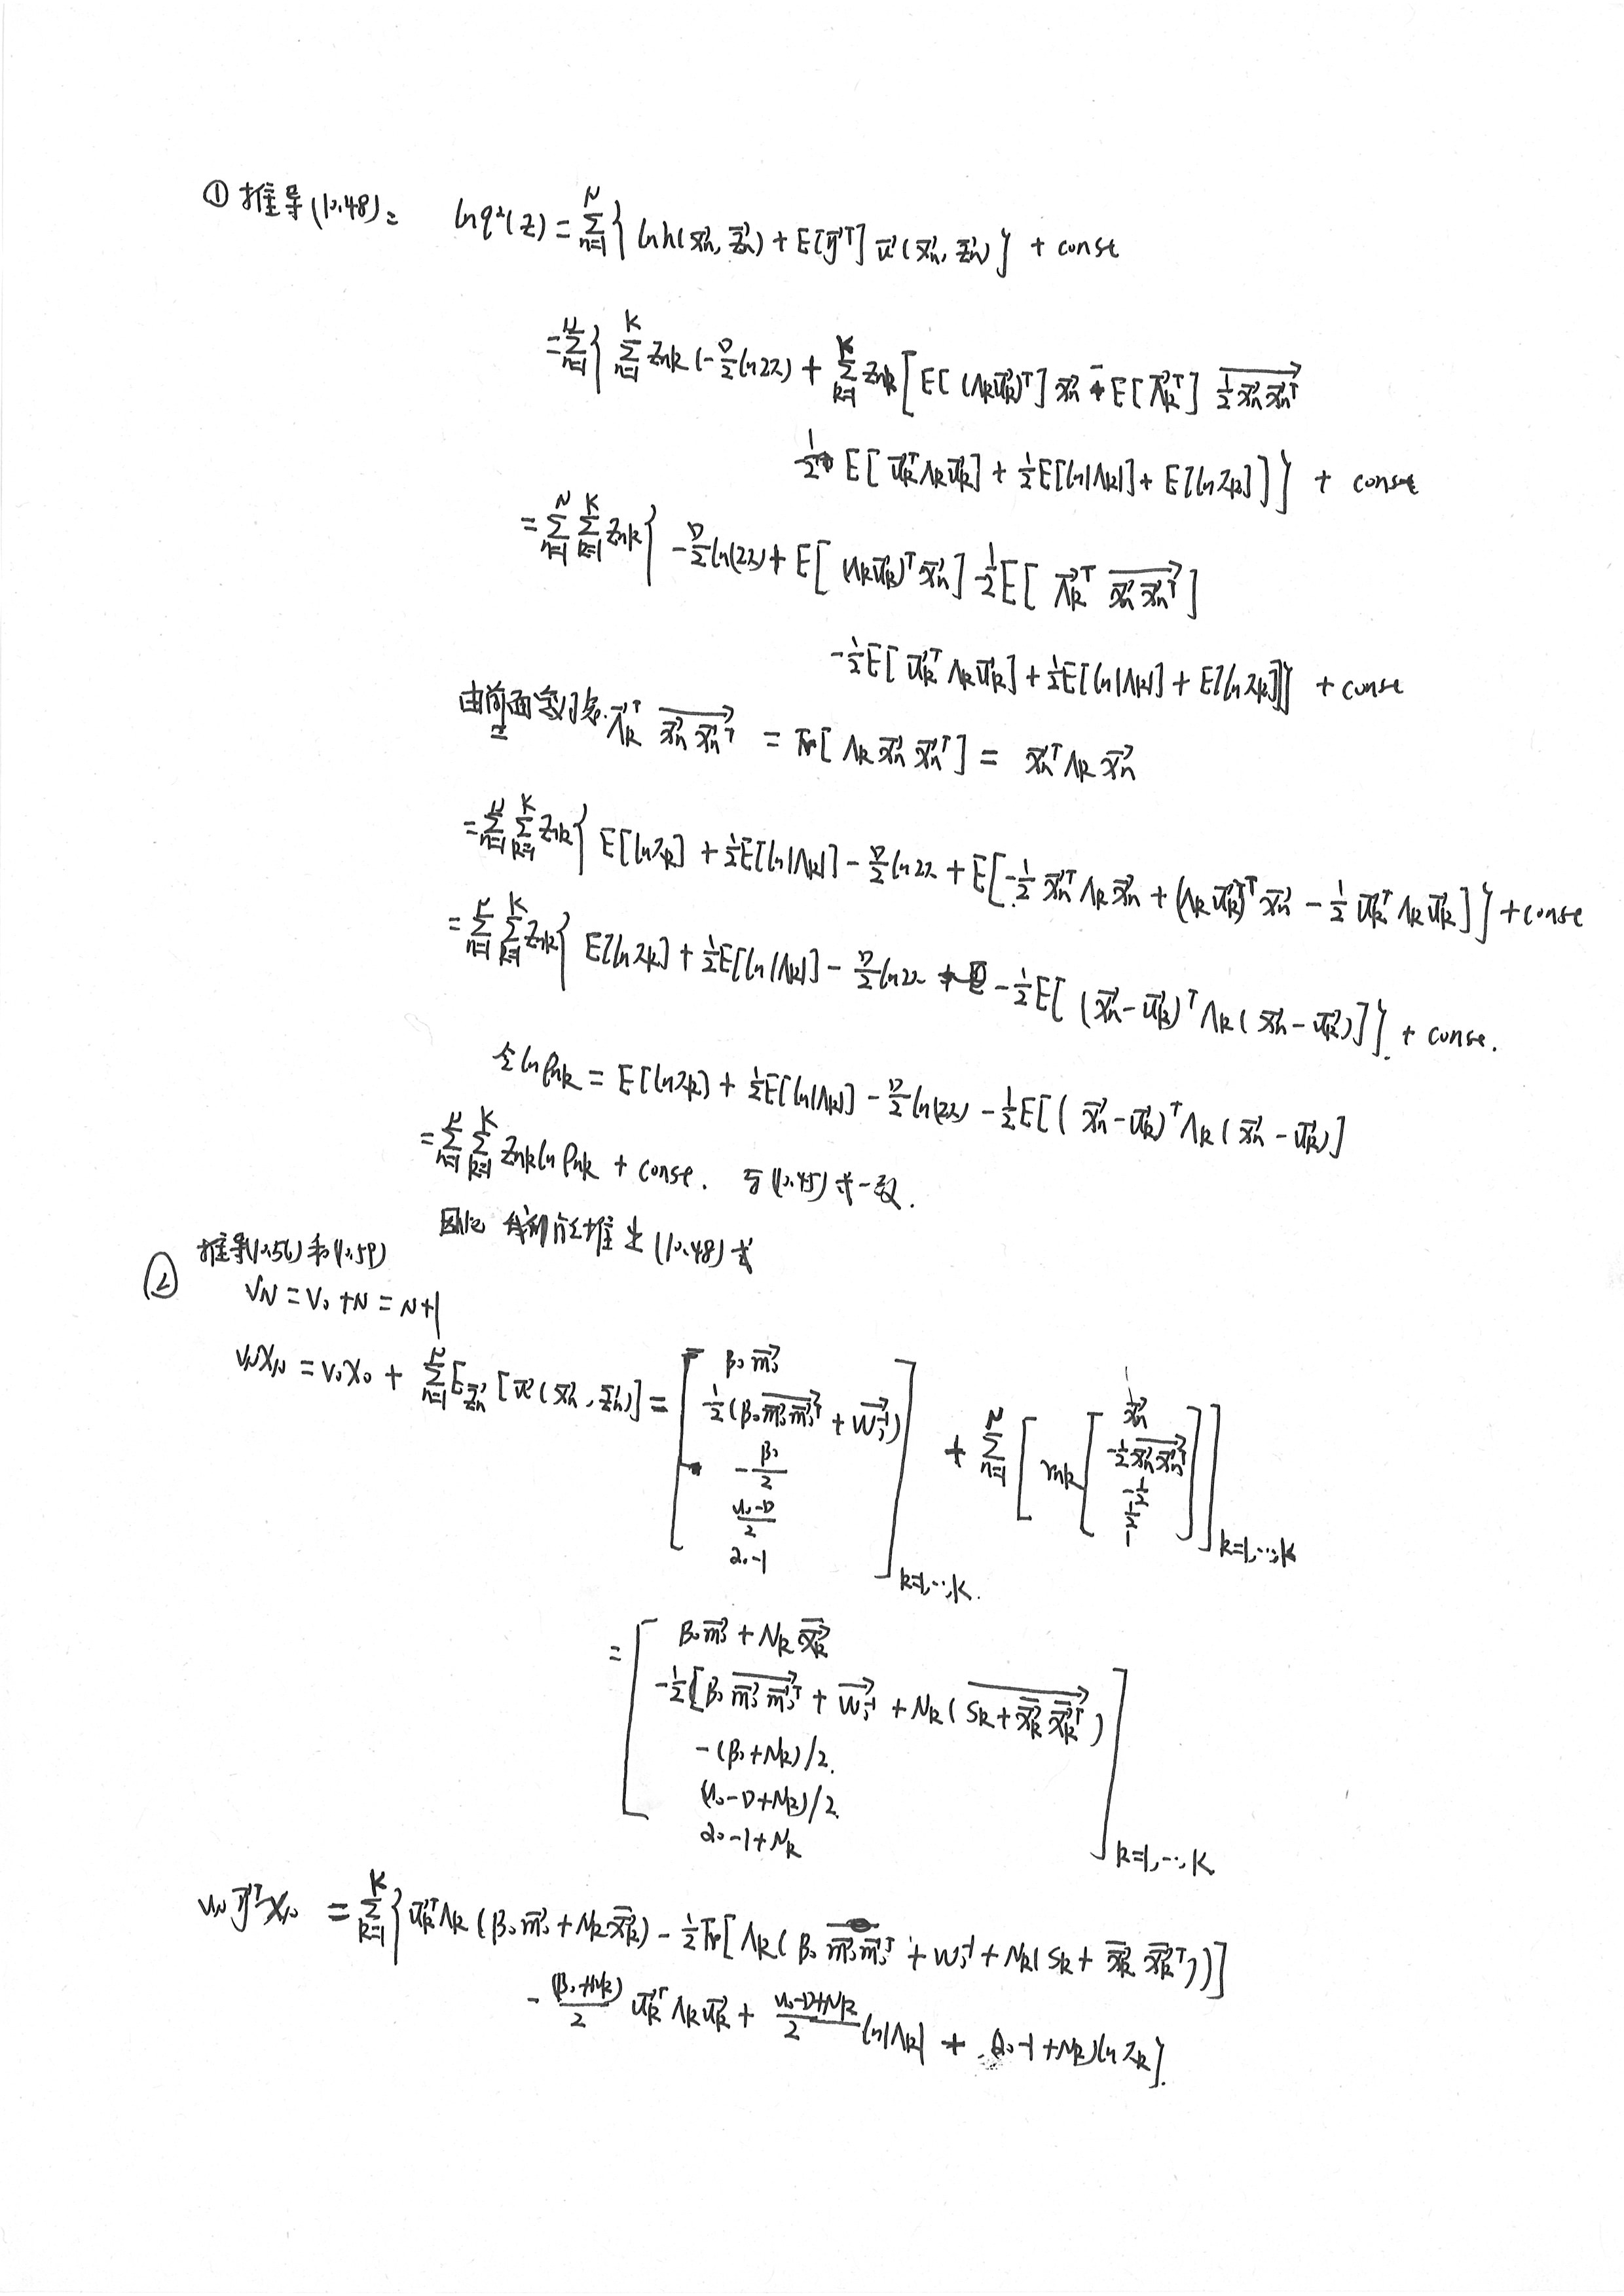 ① 推导(10.48): ln q*(z) = Σ_{n=1}^{N} { ln h(x⃗n, z⃗n) + E[η⃗ᵀ] u⃗(x⃗n, z⃗n) } + const
= Σ_{n=1}^{N} { Σ_{n=1}^{K} Znk (-D/2 ln2π) + Σ_{k=1}^{K} Znk [ E[(Λk u⃗k)ᵀ] x⃗n - E[Λ⃗kᵀ] ½ x⃗n x⃗nᵀ
-½ E[u⃗kᵀ Λk u⃗k] + ½E[ln|Λk|] + E[lnπk] ] } + const
= Σ_{n=1}^{N} Σ_{k=1}^{K} Znk { -D/2 ln(2π) + E[(Λk u⃗k)ᵀ x⃗n] -½E[Λ⃗kᵀ x⃗n x⃗nᵀ]
-½E[u⃗kᵀ Λk u⃗k] + ½E[ln|Λk|] + E[lnπk] } + const
由前面 Λ⃗kᵀ x⃗n x⃗nᵀ = Tr[Λk x⃗n x⃗nᵀ] = x⃗nᵀ Λk x⃗n
= Σ_{n=1}^{N} Σ_{k=1}^{K} Znk { E[lnπk] + ½E[ln|Λk|] - D/2 ln2π + E[-½ x⃗nᵀ Λk x⃗n + (Λk u⃗k)ᵀ x⃗n - ½ u⃗kᵀ Λk u⃗k] } + const
= Σ_{n=1}^{N} Σ_{k=1}^{K} Znk { E[lnπk] + ½E[ln|Λk|] - D/2 ln2π - ½E[(x⃗n - u⃗k)ᵀ Λk (x⃗n - u⃗k)] } + const.
令 lnρnk = E[lnπk] + ½E[ln|Λk|] - D/2 ln(2π) - ½E[(x⃗n - u⃗k)ᵀ Λk (x⃗n - u⃗k)]
= Σ_{n=1}^{N} Σ_{k=1}^{K} Znk lnρnk + const. 与(10.45)式一致.
因此 推出(10.48)式
② 推导(10.56)和(10.59)
νN = ν0 + N = N+1
νNχN = ν0χ0 + Σ_{n=1}^{N} E_{z⃗n}[u⃗(x⃗n, z⃗n)] = [ β0 m⃗0 ; -½(β0 m⃗0 m⃗0ᵀ + W⃗0⁻¹) ; -β0/2 ; (ν0-D)/2 ; α0-1 ]_{k=1,…,K} + Σ_{n=1}^{N} [ rnk [ x⃗n ; -½ x⃗n x⃗nᵀ ; -½ ; ½ ; 1 ] ]_{k=1,…,K}
= [ β0 m⃗0 + Nk x̄⃗k ; -½[β0 m⃗0 m⃗0ᵀ + W⃗0⁻¹ + Nk(Sk + x̄⃗k x̄⃗kᵀ) ; -(β0+Nk)/2. ; (ν0-D+Nk)/2. ; α0-1+Nk ]_{k=1,…,K}
νN η⃗ᵀ χN = Σ_{k=1}^{K} { u⃗kᵀ Λk (β0 m⃗0 + Nk x̄⃗k) - ½Tr[Λk(β0 m⃗0 m⃗0ᵀ + W0⁻¹ + Nk(Sk + x̄⃗k x̄⃗kᵀ))]
- (β0+Nk)/2 u⃗kᵀ Λk u⃗k + (ν0-D+Nk)/2 ln|Λk| + (α0-1+Nk)lnπk }.